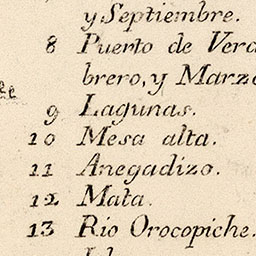 y Septiembre.
8 Puerto de Vera
brero, y Marzo
9 Lagunas.
10 Mesa alta.
11 Anegadizo.
12 Mata.
13 Rio Orocopiche.